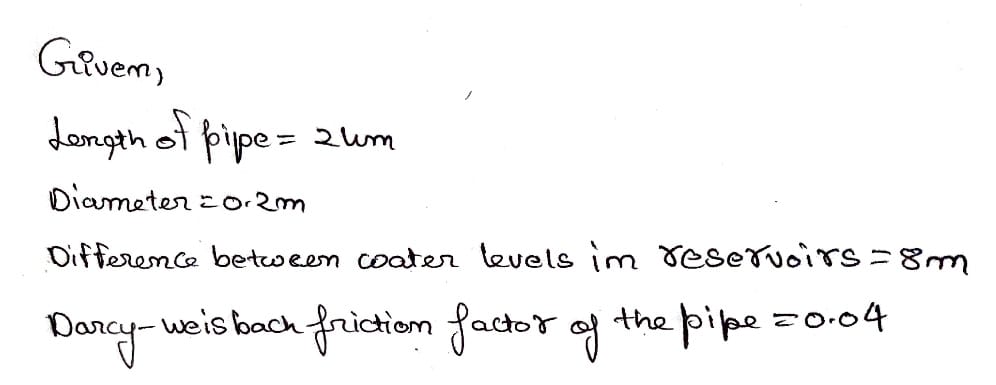 Given,
Length of pipe = 2km
Diameter = 0.2m
Difference between water levels in reservoirs = 8m
Darcy-weisbach friction factor of the pipe = 0.04